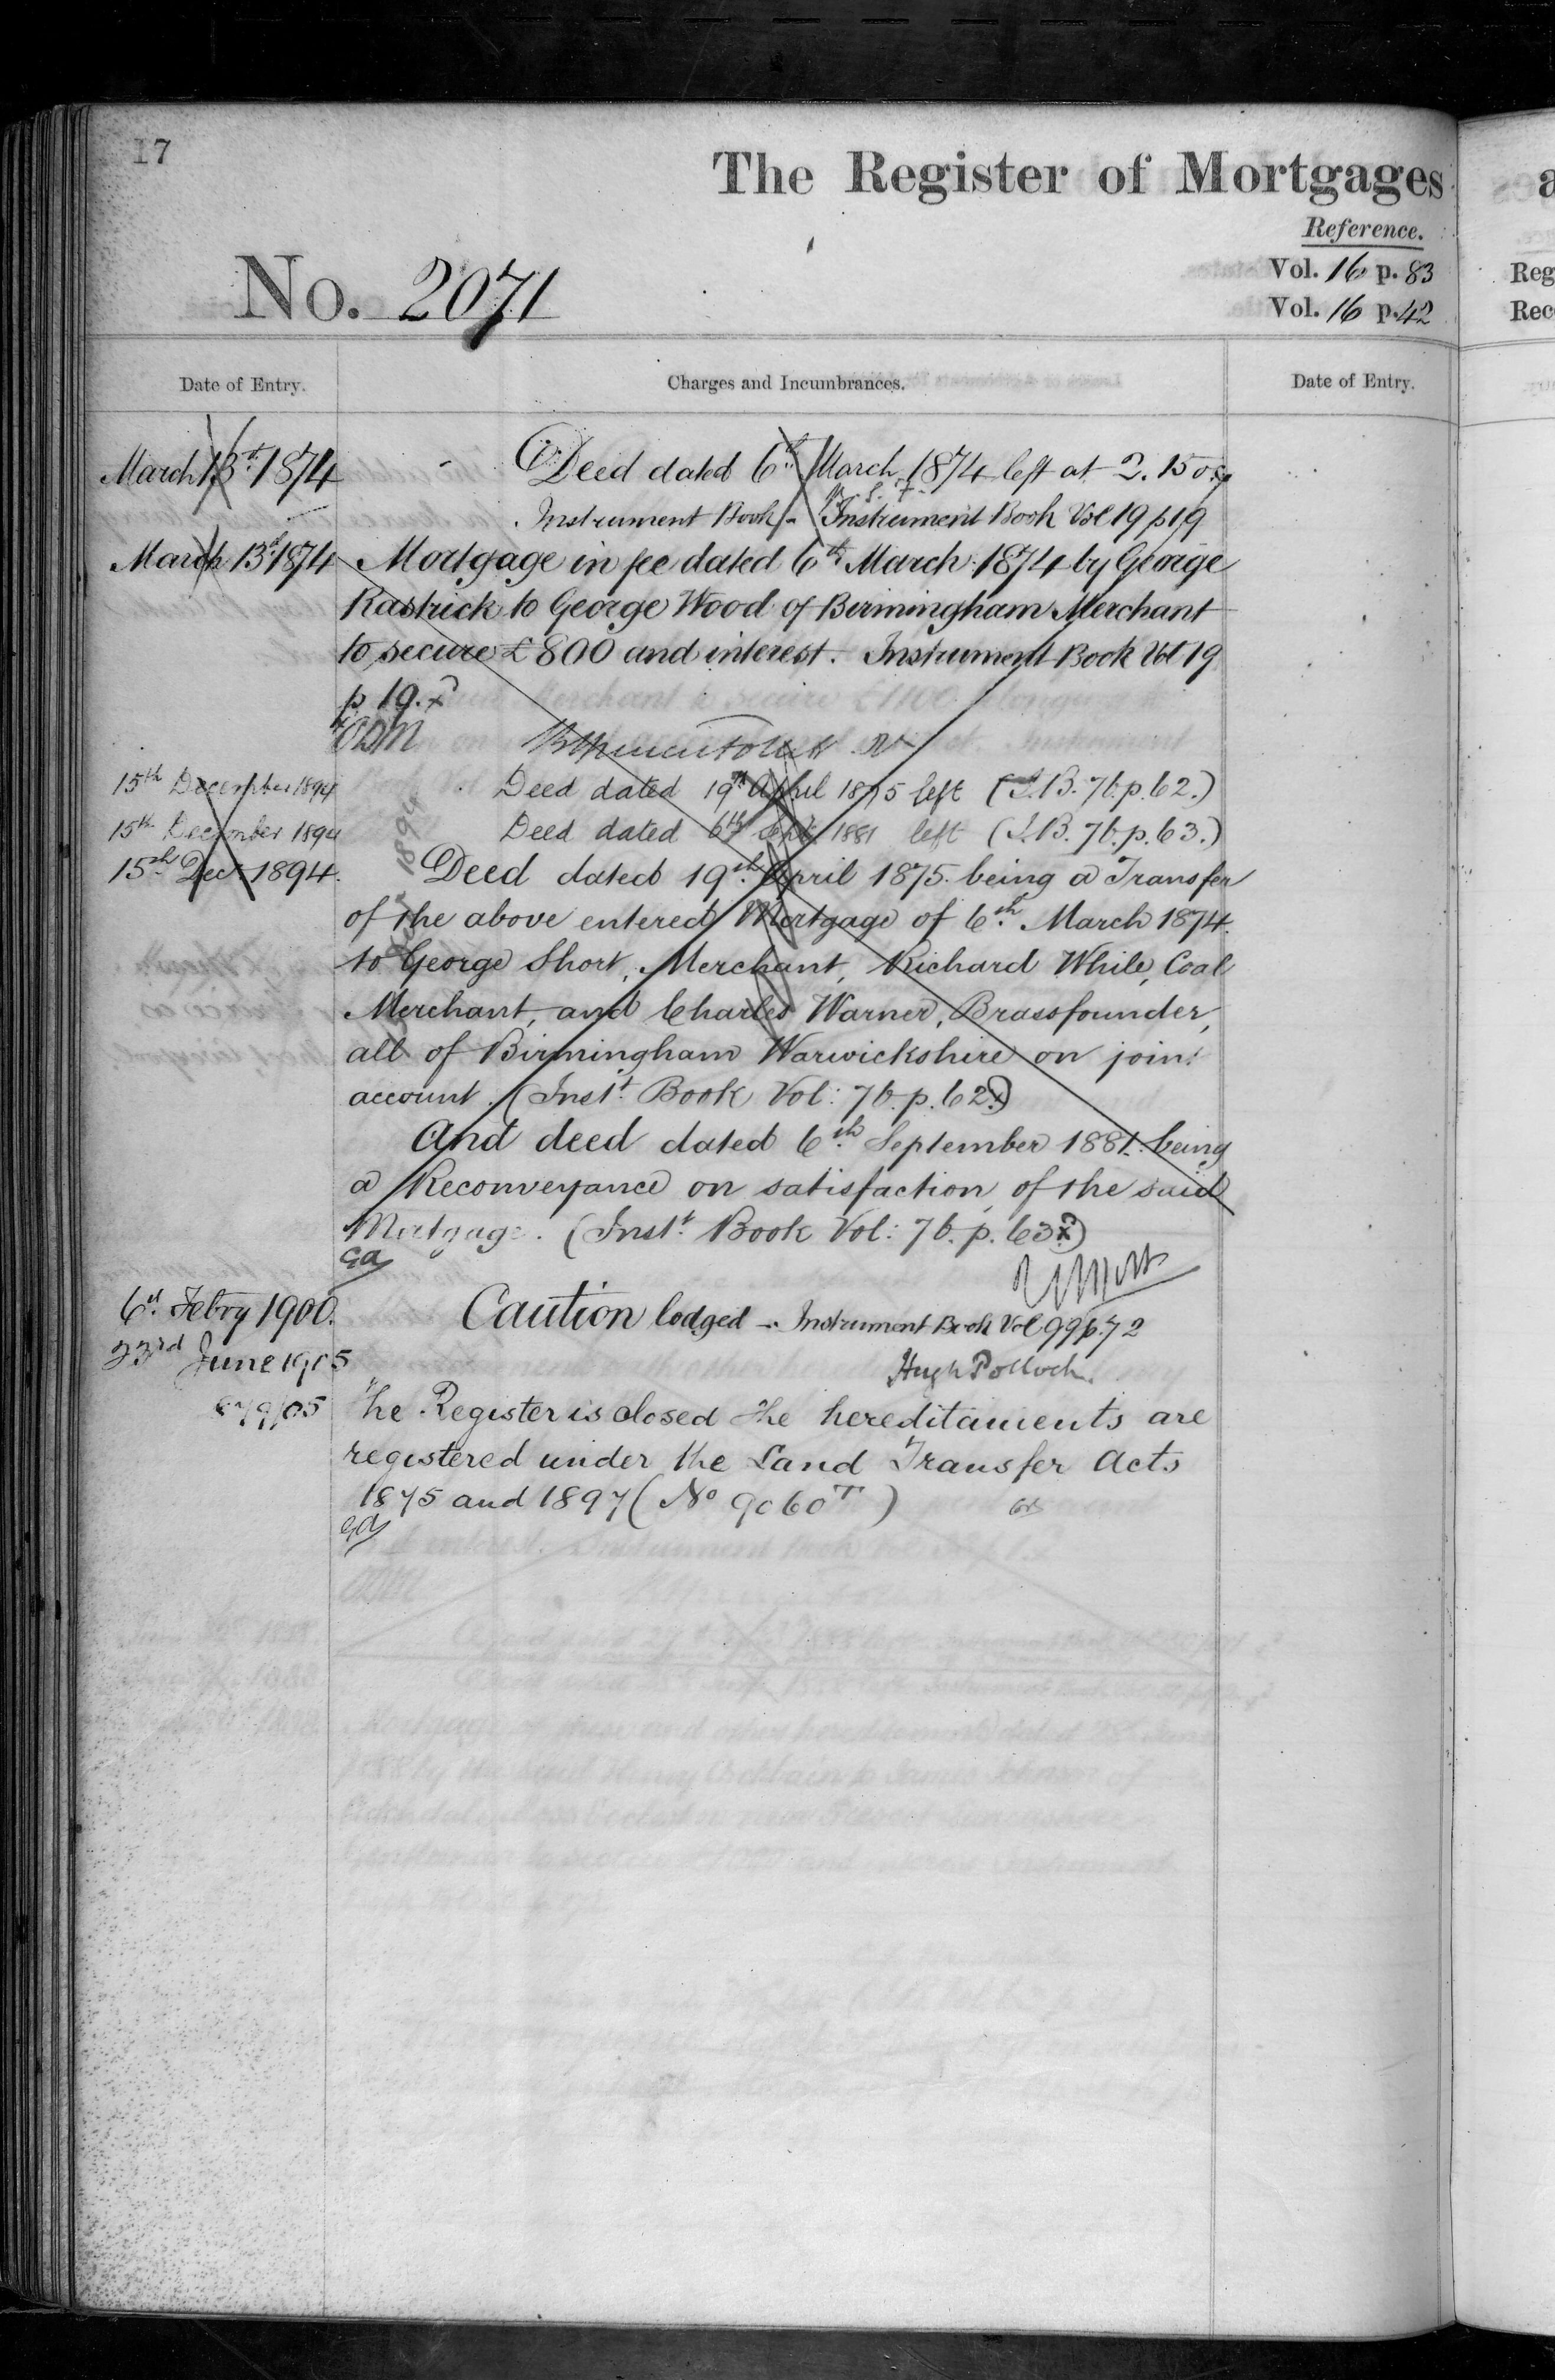 17
The Register of Mortgages
Reference.
No. 2071
Vol. 16 p. 83
Vol. 16 p. 42
Date of Entry.
Charges and Incumbrances.
Date of Entry.
March 13th 1874
Deed dated 6th March 1874 left at 2.15
Instrument Book - Instrument Book Vol 19 p 19
March 13th 1874
Mortgage in fee dated 6th March 1874 by George
Rastrick to George Wood of Birmingham Merchant
to secure £800 and interest. Instrument Book Vol 19
p 19.
15th December 1894
Deed dated 19th April 1875 left (I.B. 76. p. 62.)
15th December 1894
Deed dated 6th Sept. 1881 left (I.B. 76. p. 63.)
15th Dec. 1894.
Deed dated 19th April 1875 being a Transfer
of the above entered Mortgage of 6th March 1874
to George Short, Merchant, Richard While, Coal
Merchant, and Charles Warner, Brassfounder,
all of Birmingham Warwickshire on joint
account. (Inst. Book Vol: 76. p. 62.)
And deed dated 6th September 1881 being
a Reconveyance on satisfaction of the said
Mortgage. (Inst. Book Vol: 76. p. 63.)
6th Febry 1900.
Caution lodged - Instrument Book Vol 99 p. 72
23rd June 1905
Hugh Pollock.
The Register is closed the hereditaments are
registered under the Land Transfer Acts
1875 and 1897 (No 9060T)